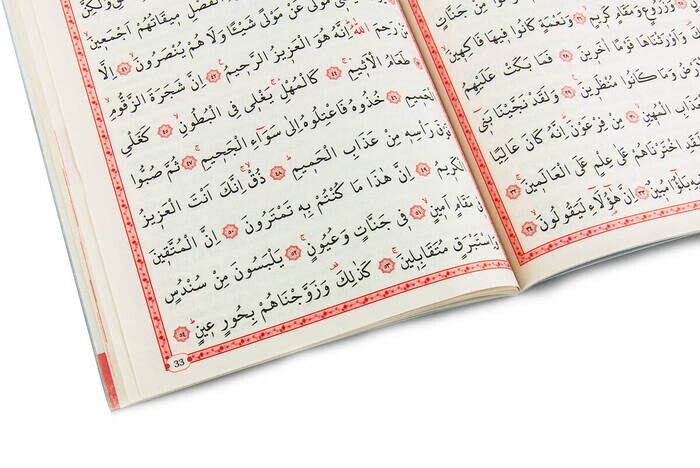 مِنْ جَنَّاتٍ
وَزُرُوعٍ وَمَقَامٍ كَرِيمٍ ٢٦ وَنَعْمَةٍ كَانُوا فِيهَا فَاكِهِينَ
وَاَوْرَثْنَاهَا قَوْمًا اٰخَرِينَ ٢٨ فَمَا بَكَتْ عَلَيْهِمُ
وَمَا كَانُوا مُنْظَرِينَ ٢٩ وَلَقَدْ نَجَّيْنَا بَنِى
الْمُهِينِ ٣٠ مِنْ فِرْعَوْنَ اِنَّهُ كَانَ عَالِيًا
اخْتَرْنَاهُمْ عَلٰى عِلْمٍ عَلَى الْعَالَمِينَ ٣٢
مُبِينٌ ٣٣ اِنَّ هٰٓؤُلَٓاءِ لَيَقُولُونَ ٣٤
الْفَصْلِ مِيقَاتُهُمْ اَجْمَعِينَ
مَوْلًى عَنْ مَوْلًى شَيْئًا وَلَا هُمْ يُنْصَرُونَ ٤١ اِلَّا
رَحِمَ اللّٰهُ اِنَّهُ هُوَ الْعَزِيزُ الرَّحِيمُ ٤٢ اِنَّ شَجَرَةَ الزَّقُّومِ
طَعَامُ الْاَثِيمِ ٤٤ كَالْمُهْلِ يَغْلِى فِى الْبُطُونِ ٤٥ كَغَلْىِ
الْحَمِيمِ ٤٦ خُذُوهُ فَاعْتِلُوهُ اِلٰى سَوَٓاءِ الْجَحِيمِ ٤٧ ثُمَّ صُبُّوا
رَاْسِهِ مِنْ عَذَابِ الْحَمِيمِ ٤٨ ذُقْ اِنَّكَ اَنْتَ الْعَزِيزُ
الْكَرِيمُ ٤٩ اِنَّ هٰذَا مَا كُنْتُمْ بِهِ تَمْتَرُونَ ٥٠ اِنَّ الْمُتَّقِينَ
مَقَامٍ اَمِينٍ ٥١ فِى جَنَّاتٍ وَعُيُونٍ ٥٢ يَلْبَسُونَ مِنْ سُنْدُسٍ
وَاِسْتَبْرَقٍ مُتَقَابِلِينَ ٥٣ كَذٰلِكَ وَزَوَّجْنَاهُمْ بِحُورٍ عِينٍ ٥٤
33